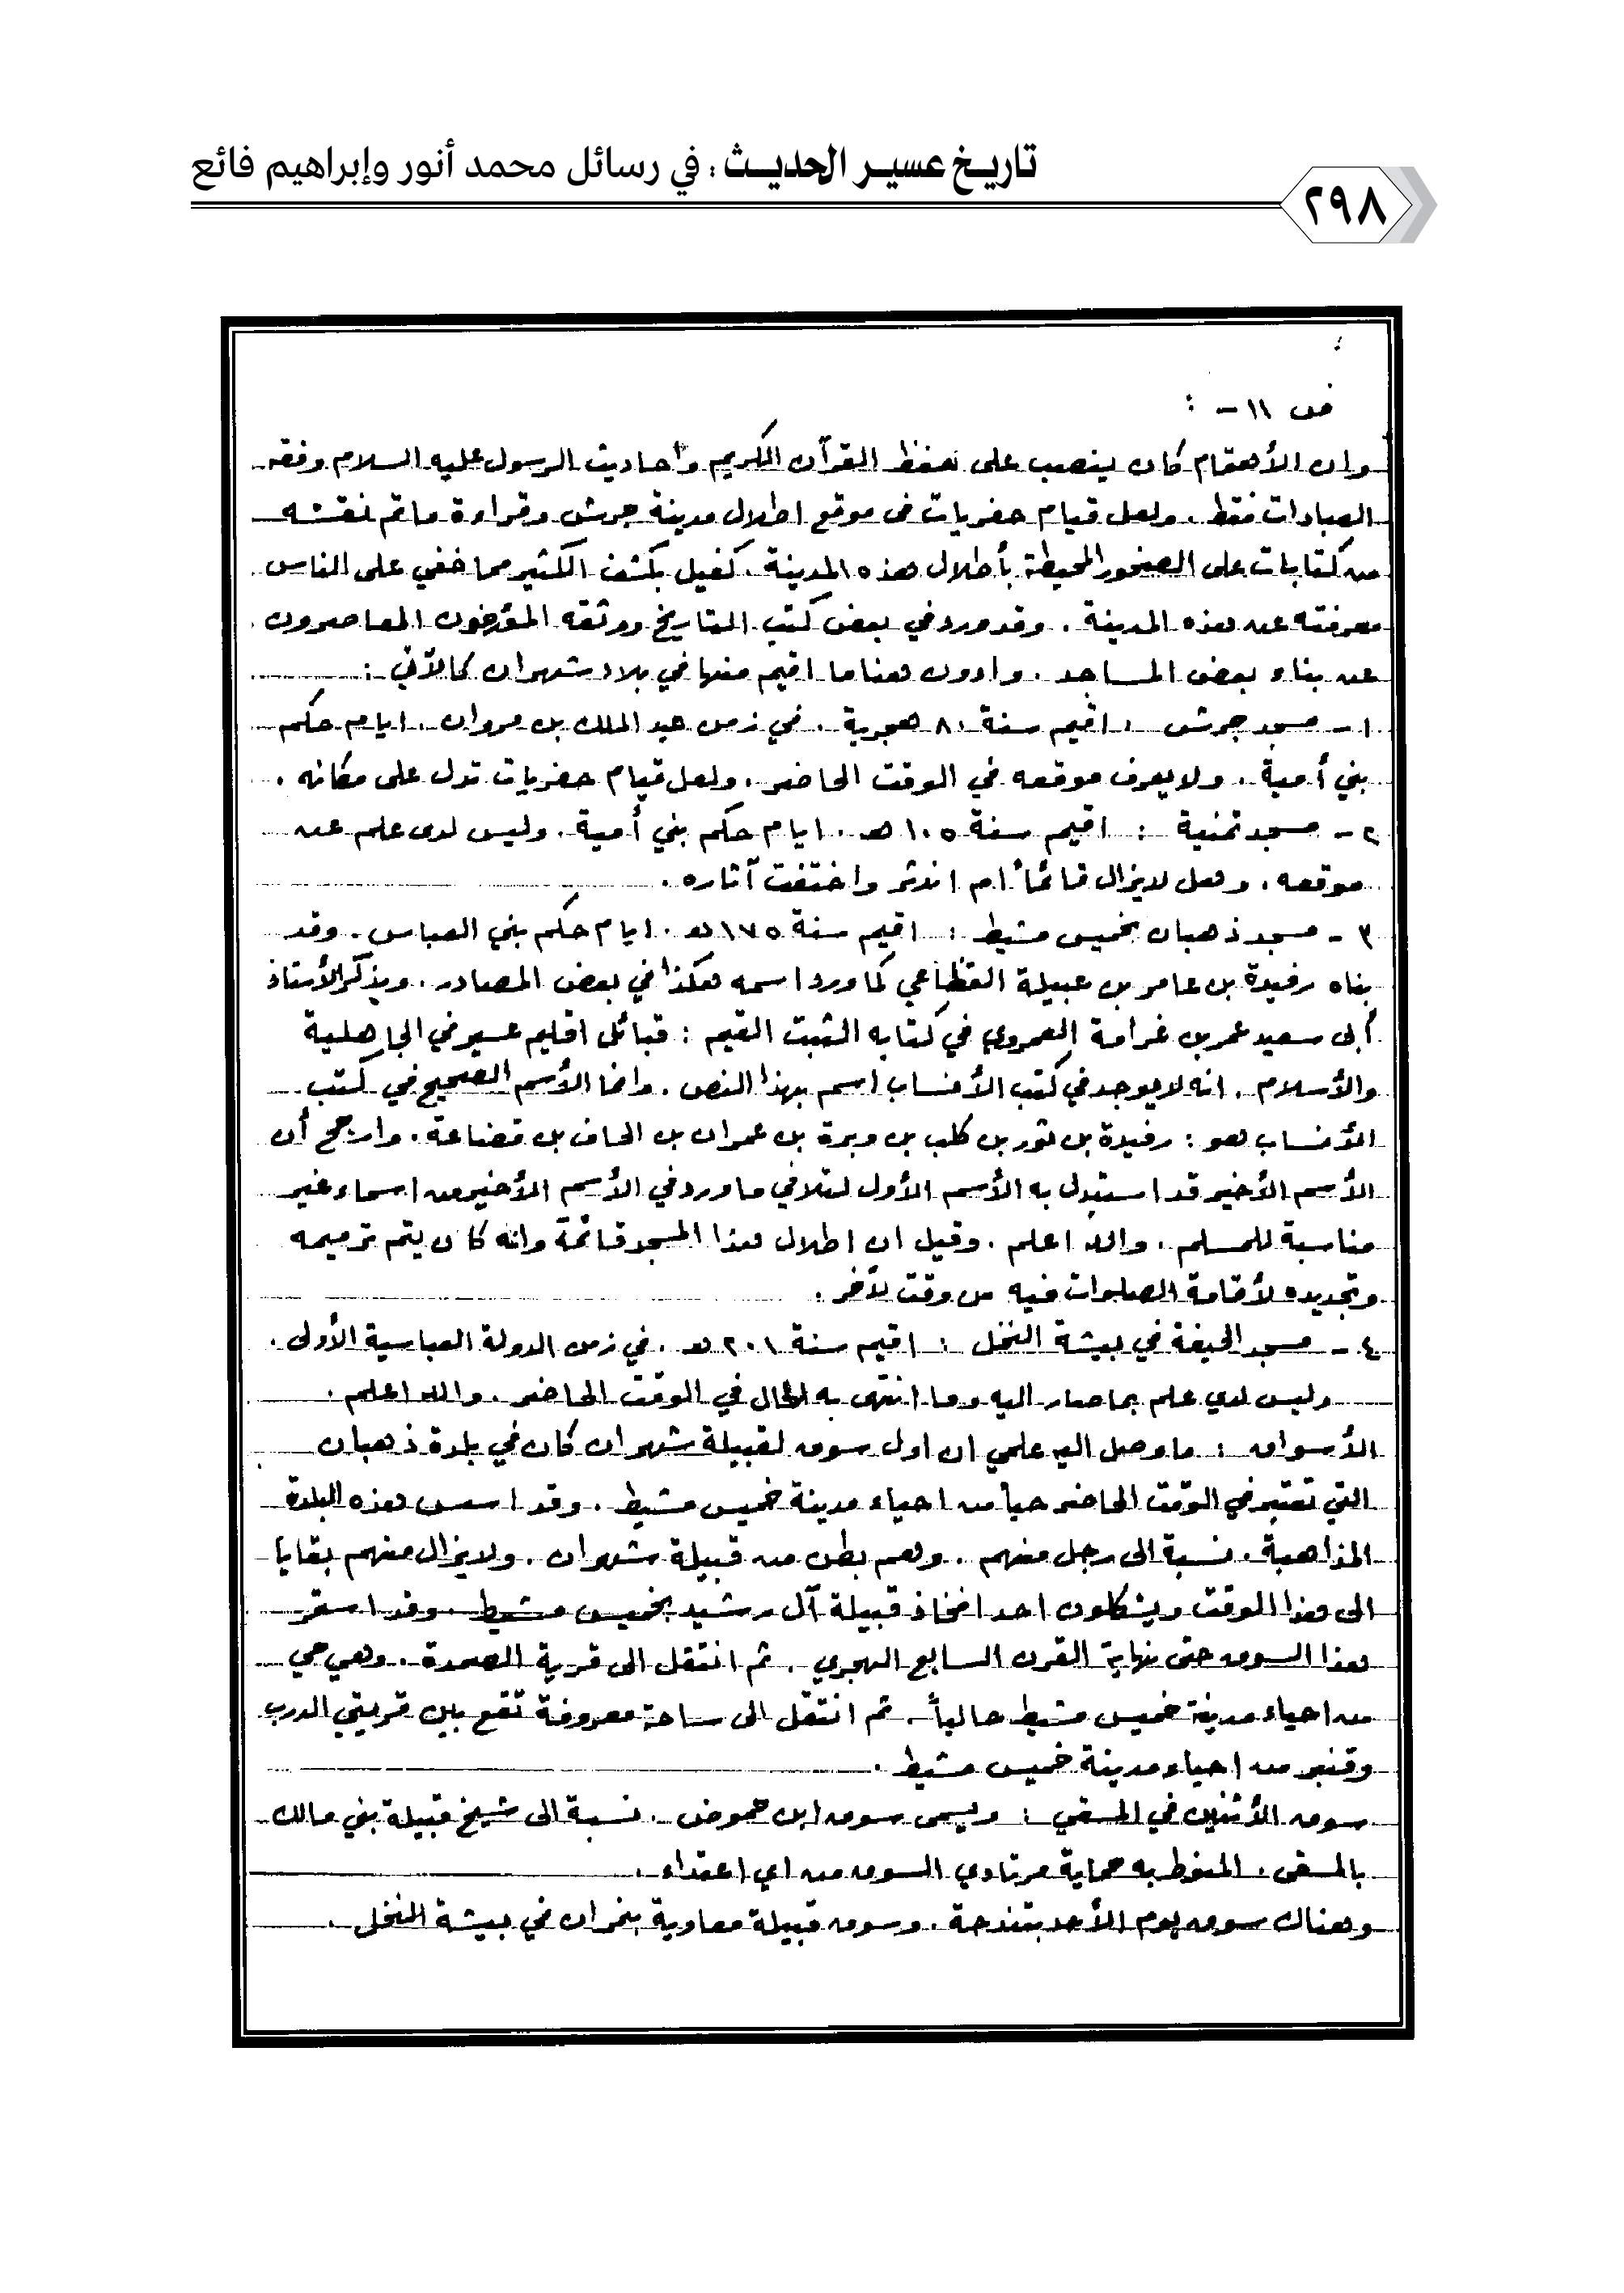 تاريخ عسير الحديث : في رسائل محمد أنور وإبراهيم فائع
٢٩٨
ص ١١ - :
وان الأهتمام كان ينصب على حفظ القرآن الكريم وأحاديث الرسول عليه السلام وفقه
العبادات فقط . ولعل قيام حفريات فى موقع اطلال مدينة جرش وقراءة ماتم نقشه
من كتابات على الصخور المحيطة بأطلال هذه المدينة . كفيل بكشف الكثير مما خفي على الناس
معرفته عن هذه المدينة . وقد ورد في بعض كتب التاريخ ووثقه المؤرخون المعاصرون
عن بناء بعض المساجد . وادون هنا ما اقيم منها في بلاد شهران كالآتي :
١ - مسجد جرش : اقيم سنة ٨٠ هجرية . في زمن عبد الملك بن مروان . ايام حكم
بني أمية . ولا يعرف موقعه في الوقت الحاضر . ولعل قيام حفريات تدل على مكانه .
٢ - مسجد تمنية : اقيم سنة ١٠٥ هـ . ايام حكم بني أمية . وليس لدى علم عن
موقعه . وهل لايزال قائماً أم اندثر واختفت آثاره .
٣ - مسجد ذهبان بخميس مشيط : اقيم سنة ١٧٥ هـ . ايام حكم بني العباس . وقد
بناه رفيدة بن عامر بن عبيلة القظاعي كما ورد اسمه هكذا في بعض المصادر . ويذكر الأستاذ
أبى سعيد عمر بن غرامة العمروي في كتابه الثبت القيم : قبائل اقليم عسير في الجاهلية
والأسلام . انه لايوجد في كتب الأنساب اسم بهذا النص . وانما الأسم الصحيح في كتب
الأنساب هو : رفيدة بن ثور بن كلب بن وبرة بن عمران بن الحاف بن قضاعة . وارجح أن
الأسم الأخير قد استبدل به الأسم الأول لتلافي ما ورد في الأسم الأخير من اسماء غير
مناسبة للمسلم . والله اعلم . وقيل ان اطلال هذا المسجد قائمة وانه كان يتم ترميمه
وتجديده لأقامة الصلوات فيه من وقت لآخر .
٤ - مسجد الحيفة في بيشة النخل : اقيم سنة ٢٠١ هـ . في زمن الدولة العباسية الأولى .
وليس لدي علم بما صار اليه وما انتهى به الحال في الوقت الحاضر . والله اعلم .
الأسواق : ما وصل اليه علمي ان اول سوق لقبيلة شهران كان في بلدة ذهبان
التي تعتبر في الوقت الحاضر حياً من احياء مدينة خميس مشيط . وقد اسس هذه البلدة
الذاهبة . نسبة الى رجل منهم . وهم بطن من قبيلة شهران . ولايزال منهم بقايا
الى هذا الوقت ويشكلون احد افخاذ قبيلة آل رشيد بخميس مشيط . وقد استقر
هذا السوق حتى نهاية القرن السابع الهجري . ثم انتقل الى قرية الصمدة . وهي حي
من احياء مدينة خميس مشيط حالياً . ثم انتقل الى ساحة معروفة تقع بين قريتي الدرب
وقنبر من احياء مدينة خميس مشيط .
سوق الأثنين في المسقي : ويسمى سوق ابن حموض . نسبة الى شيخ قبيلة بني مالك
بالمسقى . المنوط به حماية مرتادي السوق من اي اعتداء .
وهناك سوق يوم الأحد بتندحة . وسوق قبيلة معاوية بنمران في بيشة النخل .